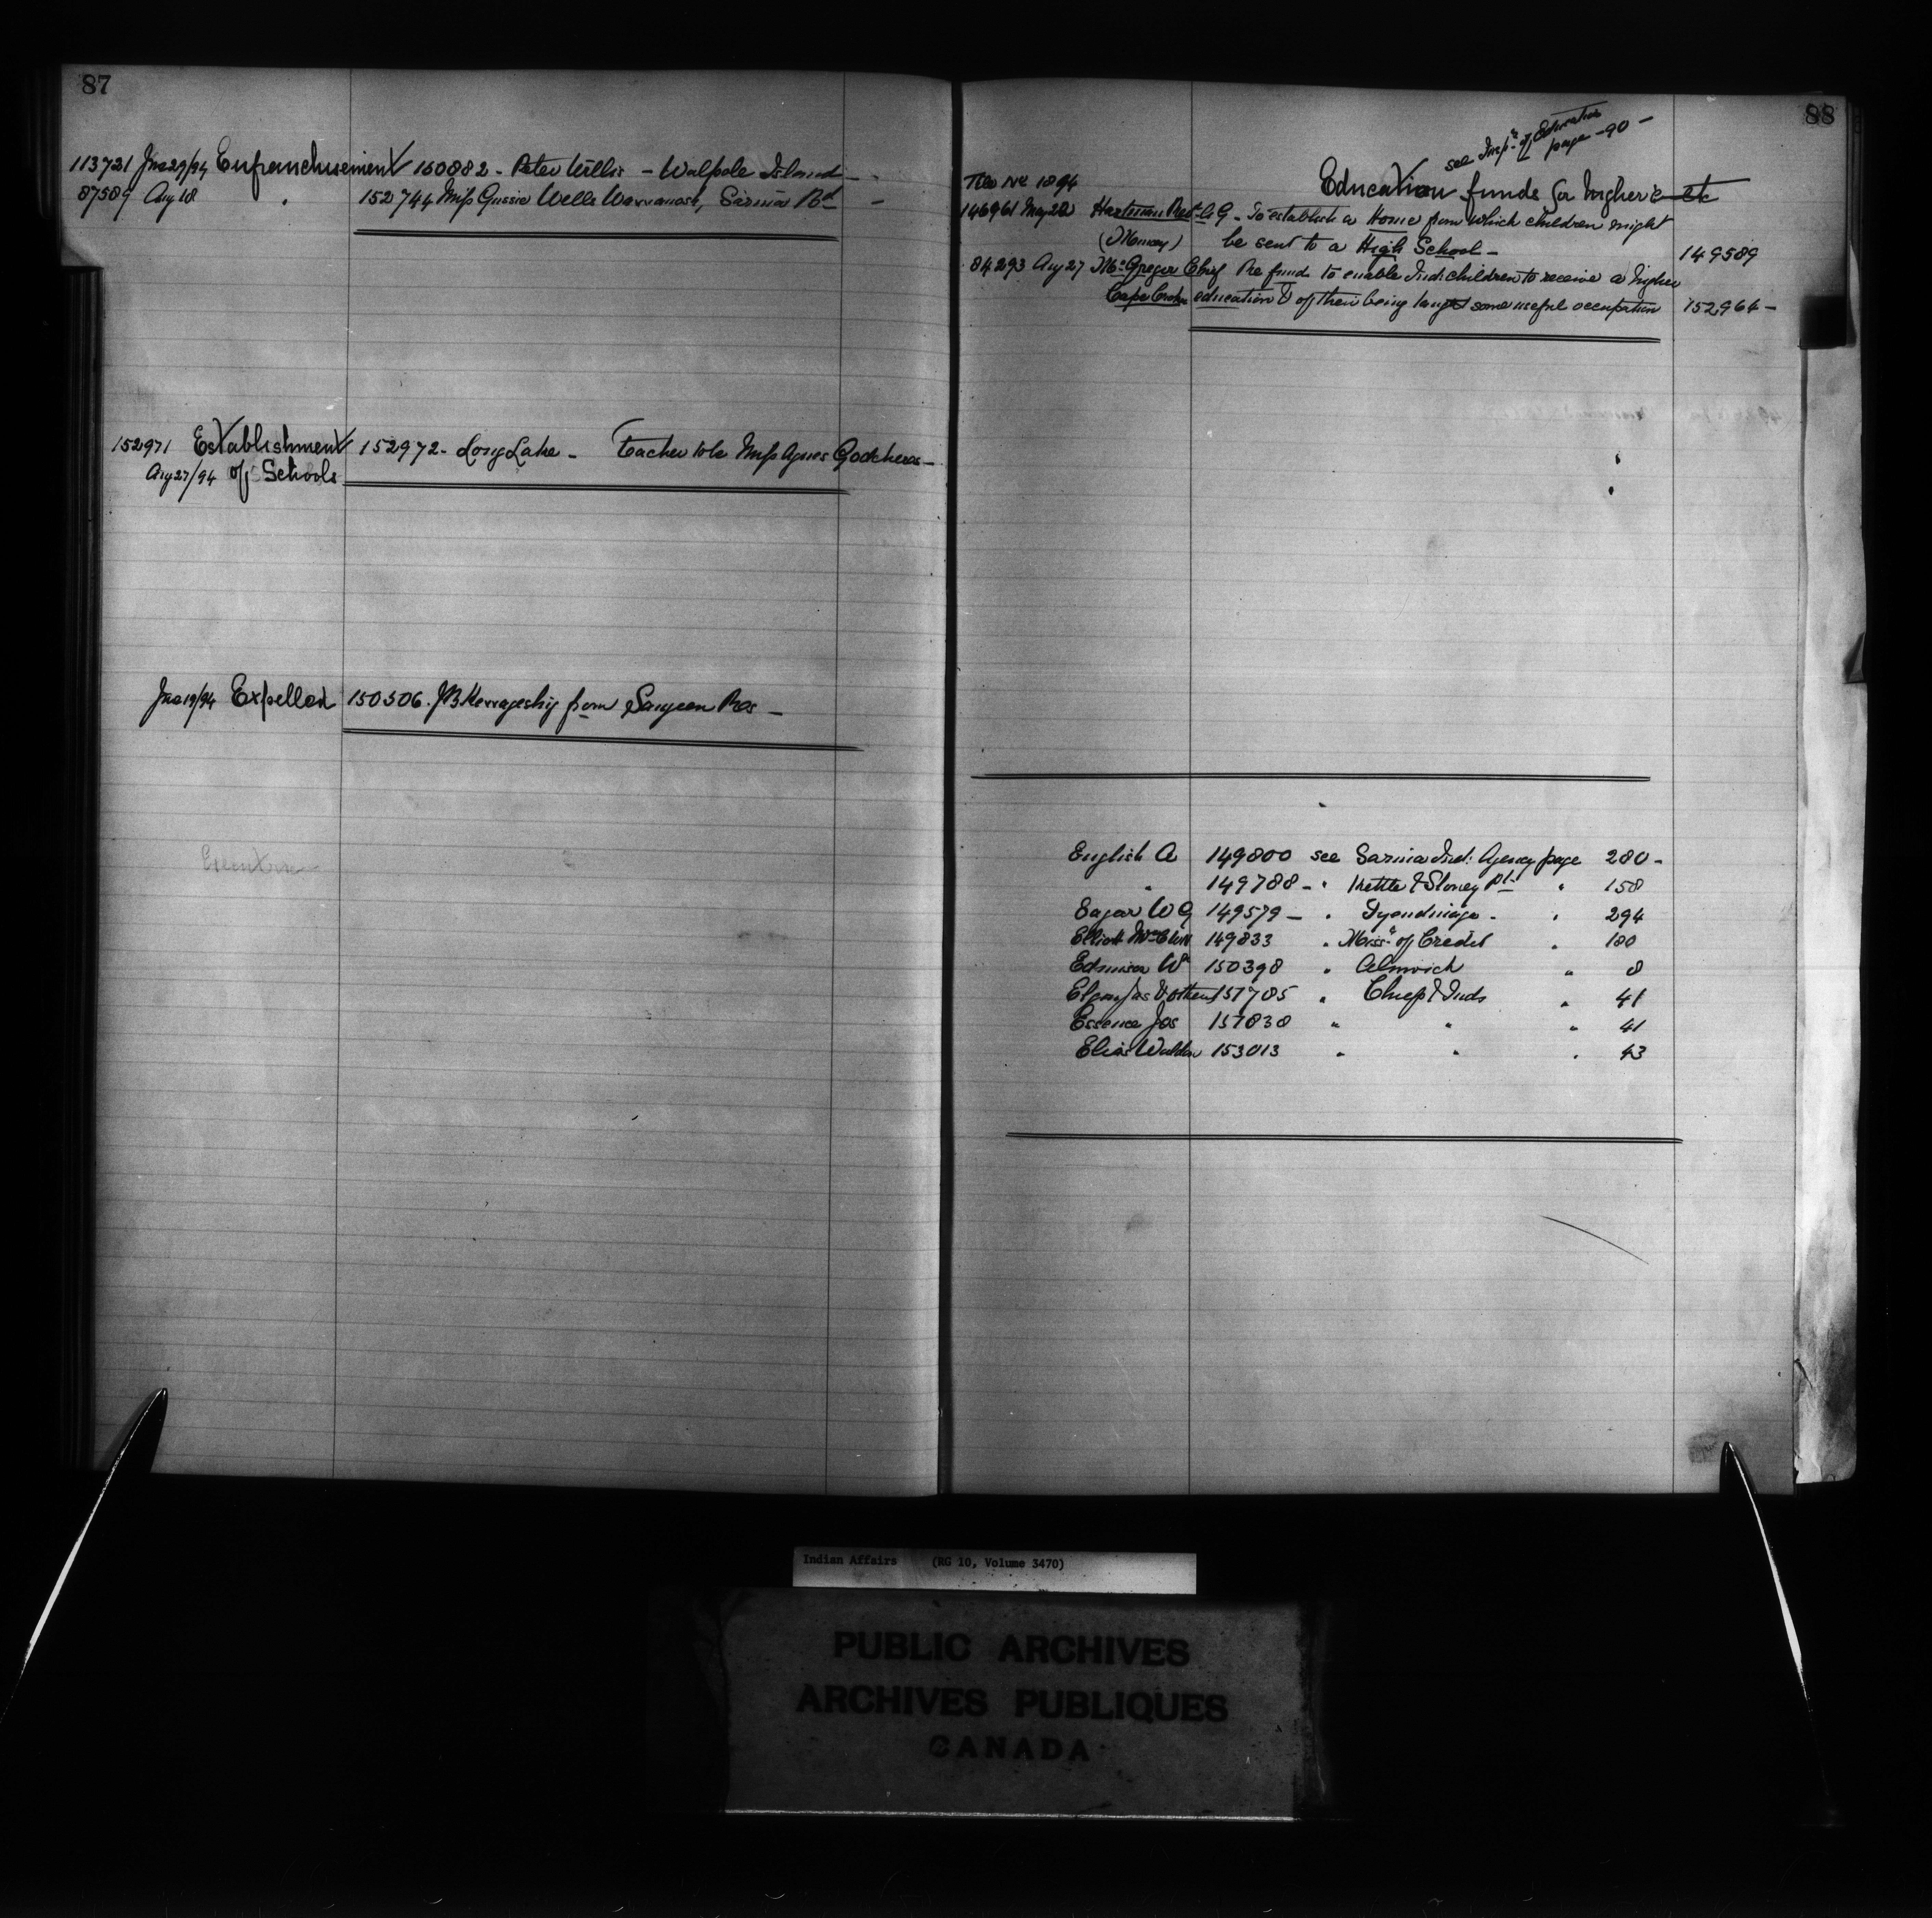 87
113721 Jne 29/94 Enfranchisement 150882 - Peter Willis - Walpole Island -
87589 Aug 18 " 152744 Miss Gussie Wells Wawanosh, Sarnia Bd -
152971 Establishment 152972 - Long Lake - Teacher to be Miss Agnes
Aug 27/94 of Schools
Jne 19/94 Expelled 150506. from Saugeen Res -
88
see Insp. of Education
page - 90 -
Education funds for higher e etc
File No 1894
146961 May 22 A G - To establish a Home from which children might
be sent to a High School - 149589
84293 Aug 27 McGregor Chief Re fund to enable Ind. children to receive a higher
Cape Croker education & of their being taught some useful occupation 152964 -
English A 149800 see Sarnia Ind. Agency page 280 -
" 149788 - " Kettle & Stoney Pt " 158
Eagar W G 149579 - " Tyendinaga - " 294
Elliott 149833 " Missa of Credit " 180
Edmison Wm 150398 " Alnwick " 8
Elgin Jas & others 151785 " Chiefs & Inds " 41
Essence Jos 151838 " " " 41
Elias 153013 " " " 43
Indian Affairs (RG 10, Volume 3470)
PUBLIC ARCHIVES
ARCHIVES PUBLIQUES
CANADA